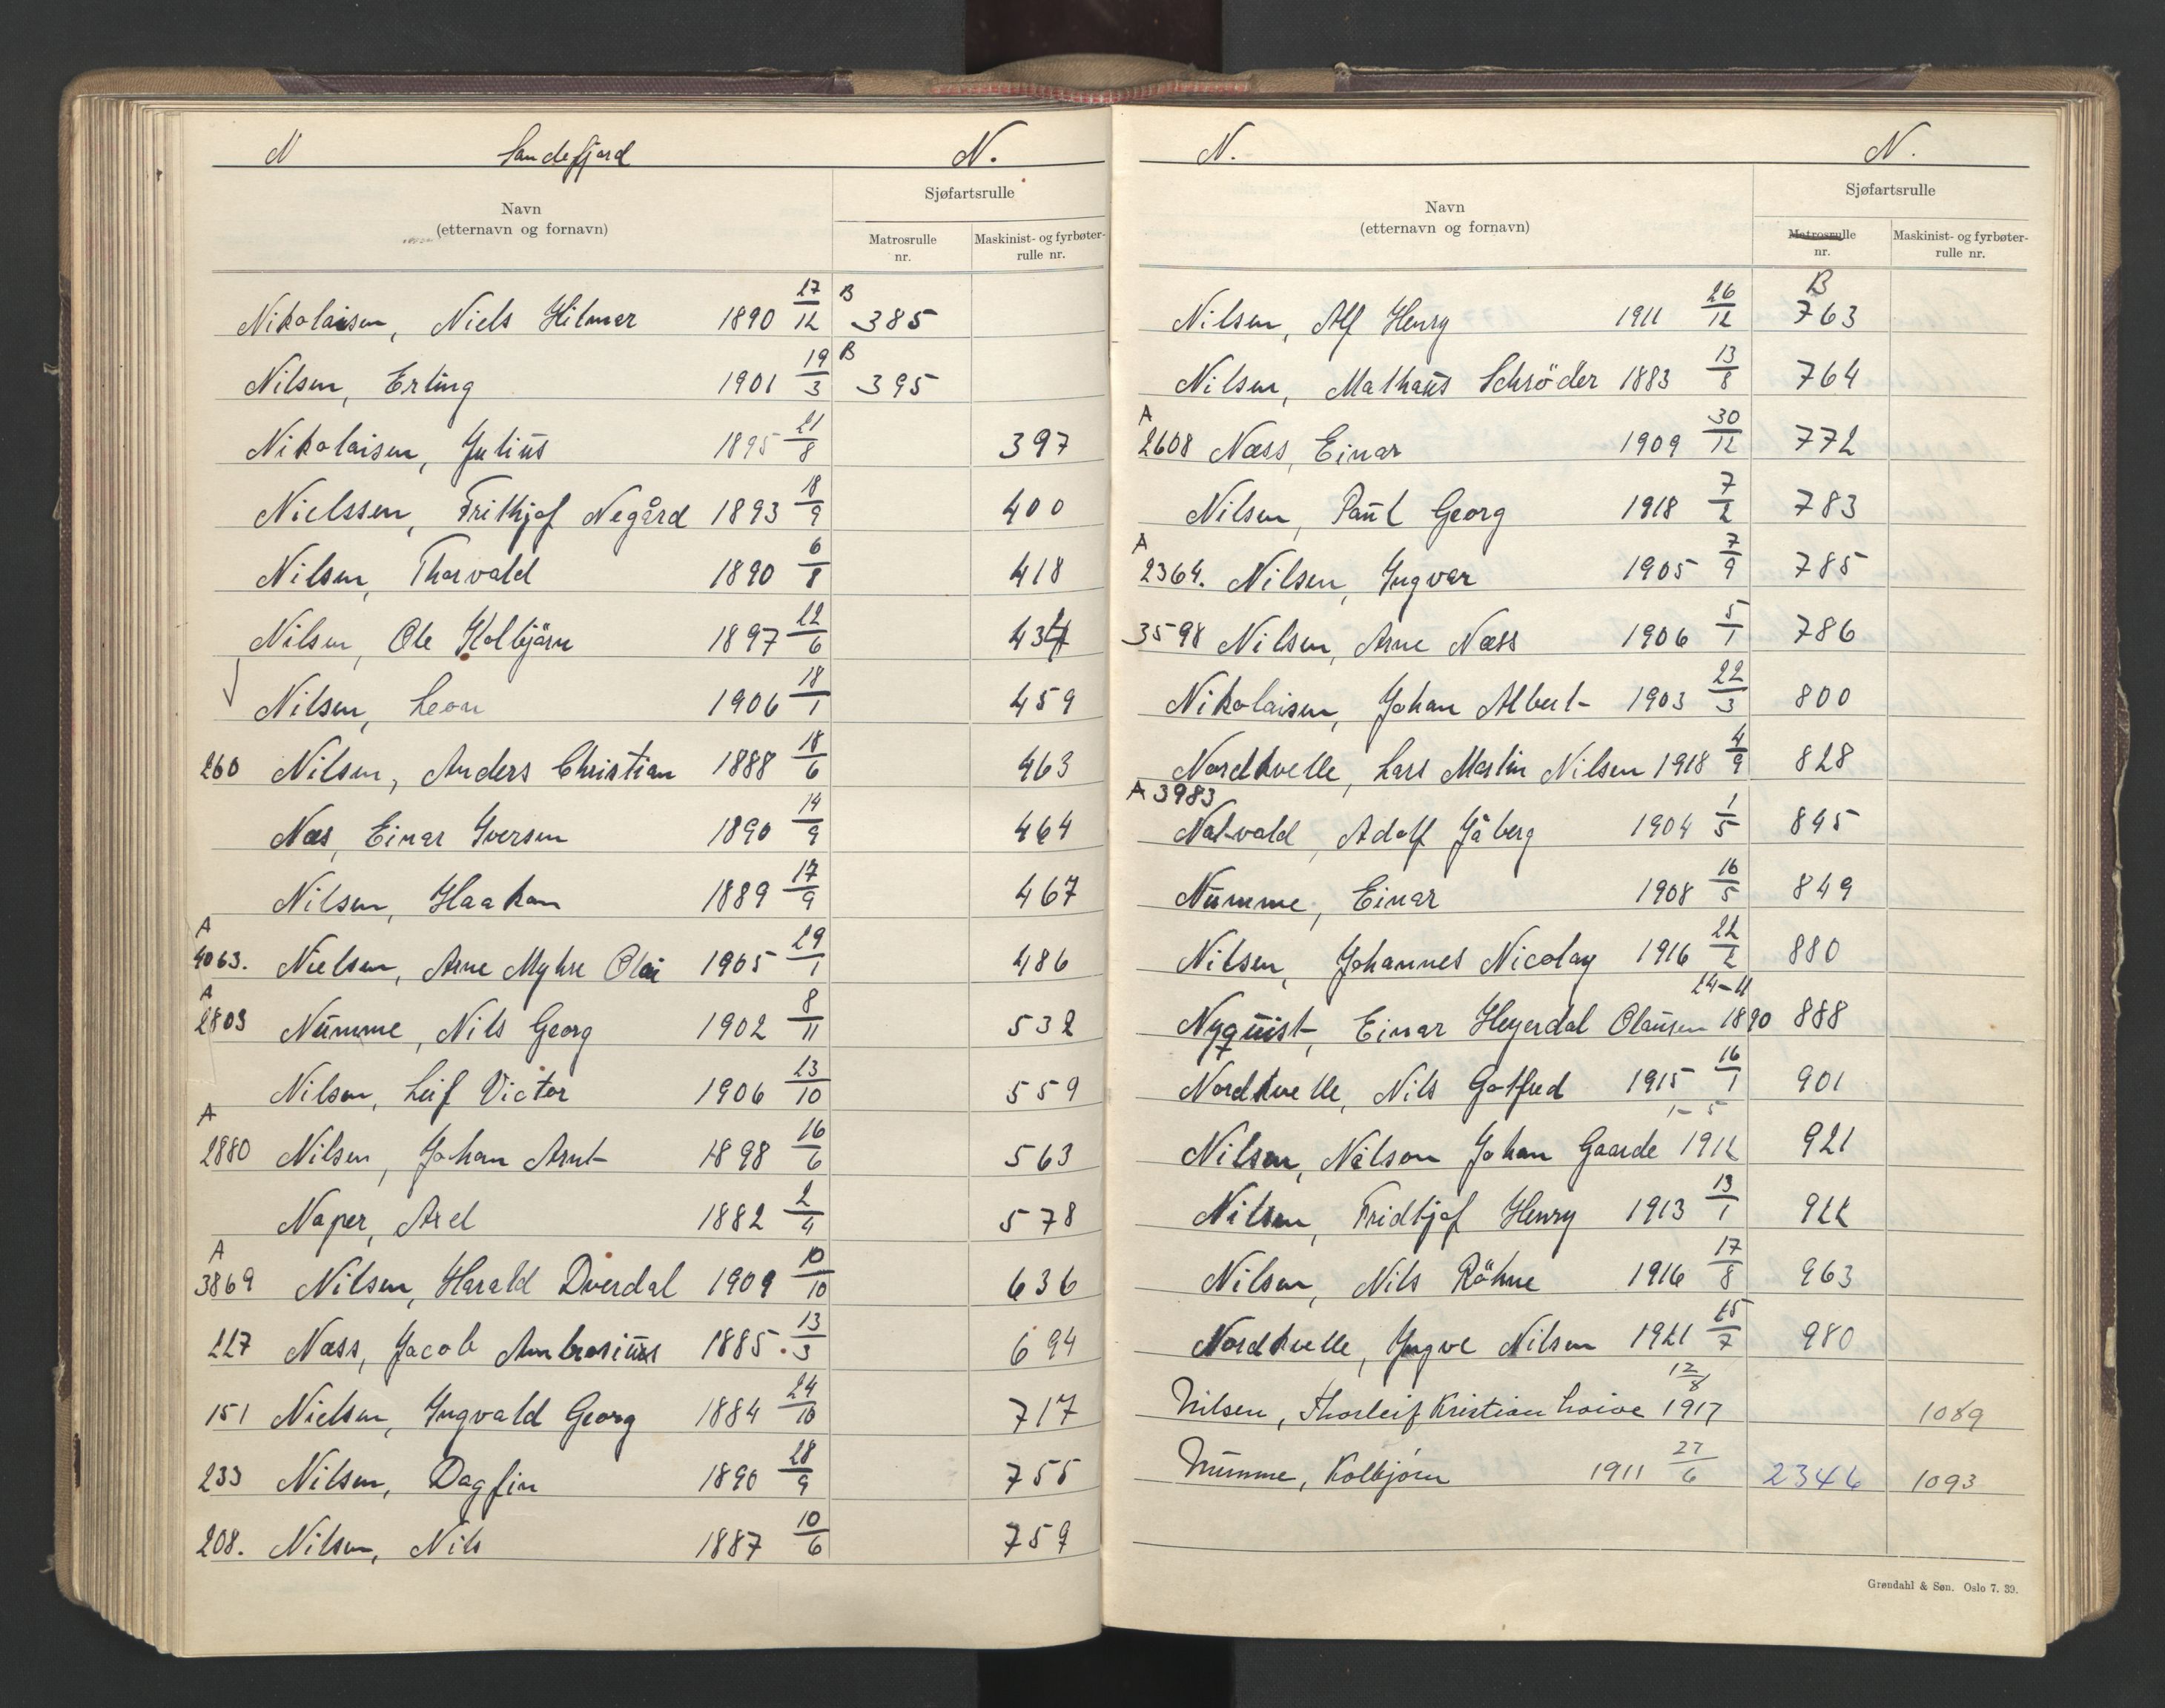 N Sandefjord N.
Navn
(etternavn og fornavn)
Sjøfartsrulle
Matrosrulle
nr.
Maskinist- og fyrbøter-
rulle nr.
Nikolaisen, Niels Hilmar 1890 27/12 B 385
Nilsen, Erling 1901 19/3 B 395
Nikolaisen, Julius 1895 21/8 397
Nielssen, Frithjof Negård 1893 18/9 400
Nilsen, Thorvald 1890 6/8 418
Nilsen, Ole Kolbjörn 1897 22/6 434
Nilsen, Leon 1906 18/1 459
260 Nilsen, Anders Christian 1888 18/6 463
Næs, Einar Iversen 1890 14/9 464
Nilsen, Haakon 1889 17/9 467
A
4063. Nielsen, Arne Myhre Olai 1905 29/1 486
A
2803 Numme, Nils Georg 1902 8/11 532
Nilsen, Leif Victor 1906 23/10 559
A
2980 Nilsen, Johan Arnt 1898 16/6 563
Naper, Axel 1882 2/4 578
A
3869 Nilsen, Harald Dverdal 1909 10/10 636
227 Næss, Jacob Ambrosius 1885. 13/3 694
151 Nielsen, Ingvald Georg 1884 24/10 717
233 Nilsen, Dagfin 1890 28/9 755
208. Nilsen, Nils 1887 10/6 759
N. N.
Navn
(etternavn og fornavn)
Sjøfartsrulle
Matrosrulle
nr.
Maskinist- og fyrbøter-
rulle nr.
Nilsen, Alf Henry 1911 26/12 B 763
Nilsen, Mathæus Schröder 1883 13/8 764
A
2608 Næss, Einar 1909 30/12 772
Nilsen, Paul Georg 1918 7/2 783
A
2364. Nilsen, Ingvar 1905 7/9 785
3598 Nilsen, Arne Næss 1906 5/1 786
Nikolaisen, Johan Albert 1903 22/3 800
Nordkvelle, Lars Martin Nilsen 1918 4/9 828
A 3983
Natvald, Adolf Jåberg 1904 1/5 845
Numme, Einar 1908 16/5 849
Nilsen, Johannes Nicolay 1916 22/2 880
24-11
Nyquist, Einar Heyerdal Olausen 1890 888
Nordkvelle, Nils Gotfred 1915 16/1 901
1-5
Nilsen, Nilson Johan Gaarde 1912 921
Nilsen, Fridtjof Henry 1913 13/1 922
Nilsen, Nils Röhne 1916 17/8 963
Nordkvelle, Yngve Nilsen 1921 25/7 980
Nilsen, Thorleif Kristian Loive 1917 12/8 1089
Numme, Kolbjørn 1911 27/6 2346 1093
Grøndahl & Søn. Oslo 7. 39.